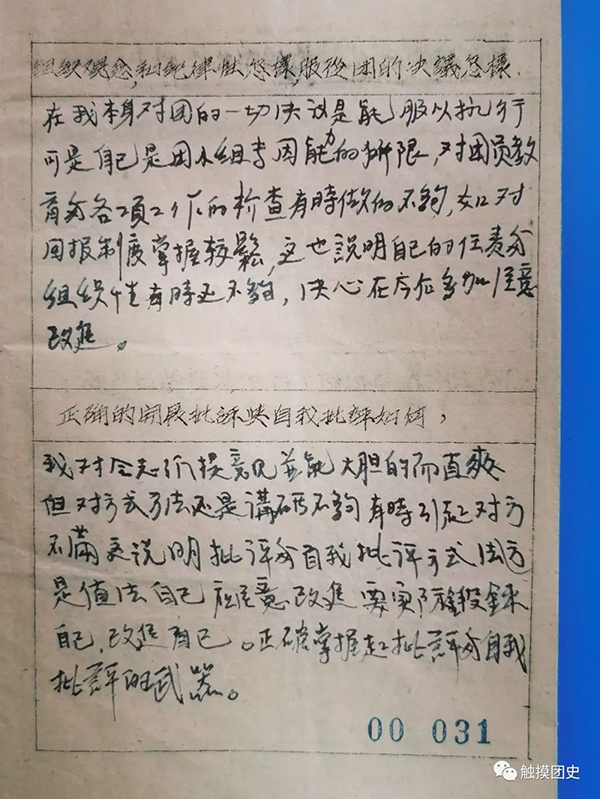 组织观念和纪律性怎樣,服從团的决議怎樣.
在我本身对团的一切决议是能服以执行
可是自己是团小组长因能力的所限,对团员教
育与各项工作的检查有時做的不夠,如对
回报制度掌握较鬆,这也說明自己的任责与
组织性有時还不夠,决心在今后多加注意
改進。
正确的開展批評與自我批評如何,
我对同志们提意见並能大胆的而直爽
但对方式方法还是講究不夠有時引起对方
不滿 说明批评与自我批评方式法
是值 自己 注意改進要实际鍛鍊
自己,改進自己。正确掌握起批評与自我
批評的武器。
00 031
触摸团史